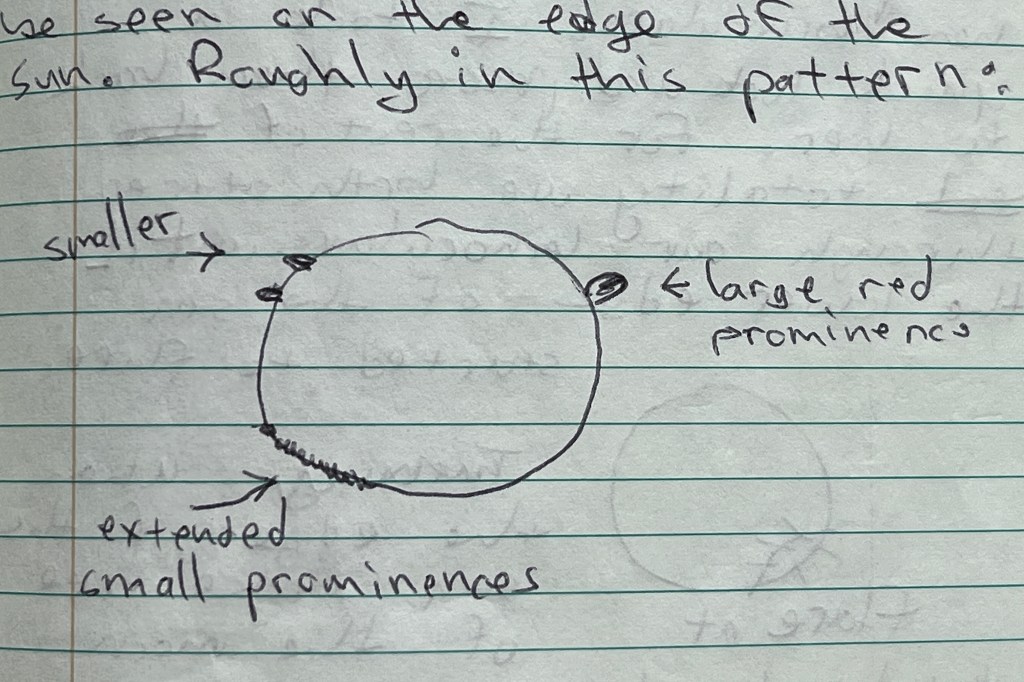 be seen on the edge of the
sun. Roughly in this pattern:
smaller →
← large red
prominence
extended
small prominences